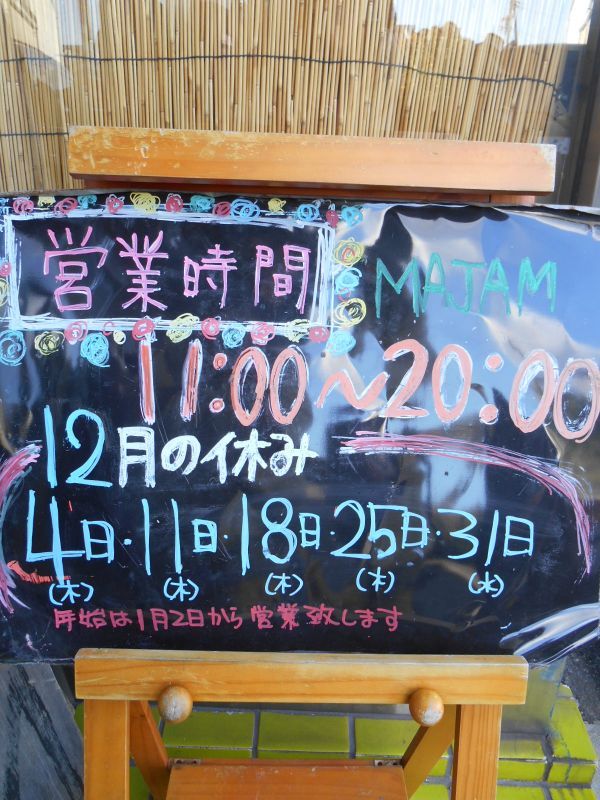 営業時間 MAJAM
11:00～20:00
12月の休み
4日・11日・18日・25日・31日
(木) (木) (木) (木) (水)
年始は1月2日から営業致します